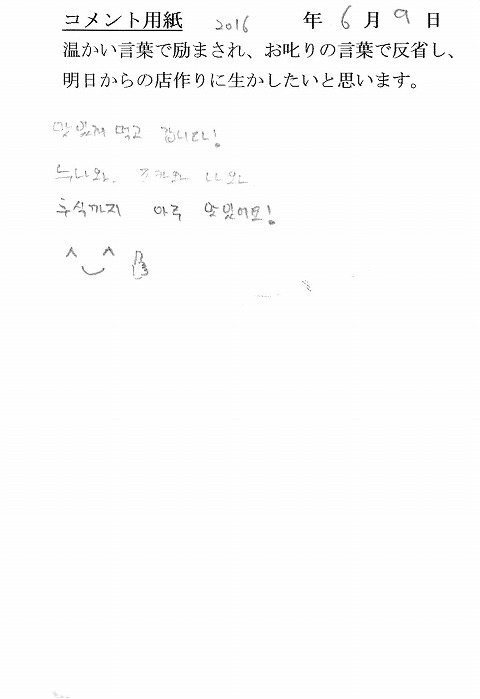 コメント用紙 2016 年 6 月 9 日
温かい言葉で励まされ、お叱りの言葉で反省し、
明日からの店作りに生かしたいと思います。
맛있게 먹고 갑니다!
누나와. 조카와
후식까지 아주 맛있어요!